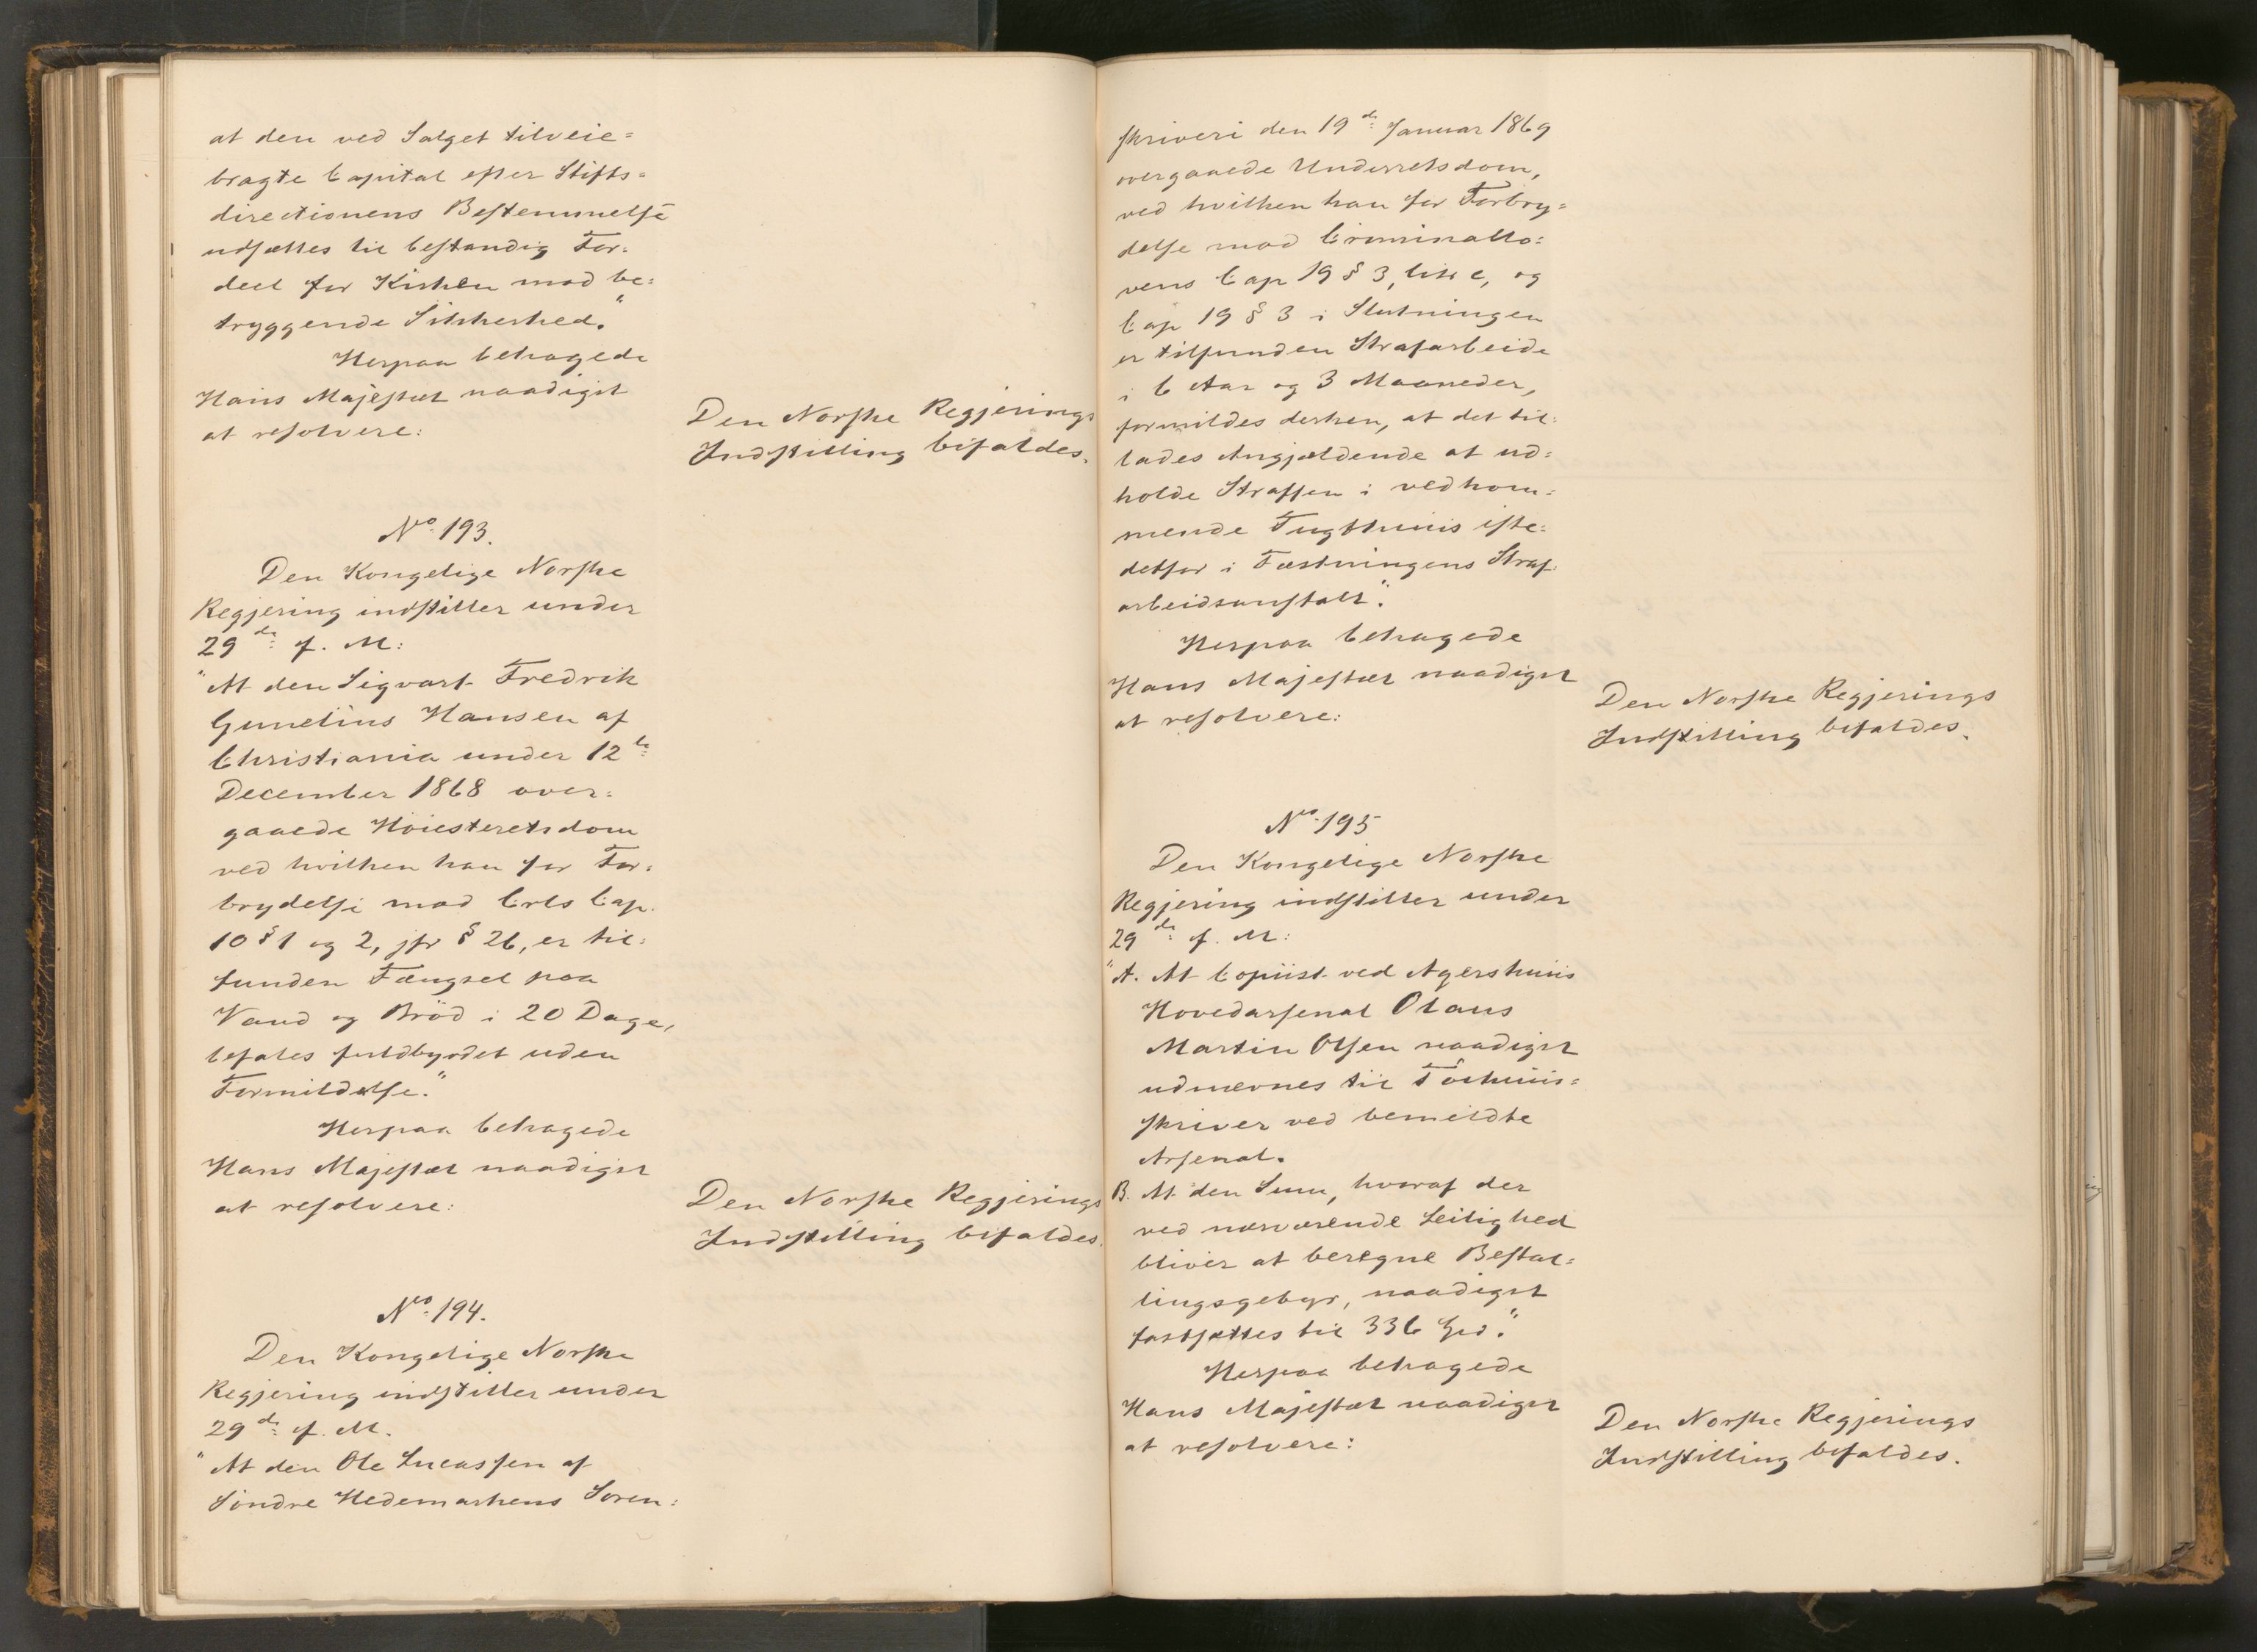 at den ved Salget tilveie=
bragte Capital efter Stifts=
directionens Bestemmelse
udsættes til bestandig For=
deel for Kirken mod be=
tryggende Sikkerhed."
Herpaa behagede
Hans Majestæt naadigst
at resolvere:
Den Norske Regjerings
Indstilling bifaldes.
No. 193.
Den Kongelige Norske
Regjering indstiller under
29de f. M:
"At den Sigvart Fredrik
Gunelius Hansen af
Christiania under 12te
December 1868 over=
gaaede Høiesteretsdom
ved hvilken han for For=
brydelse mod Crls Cap.
10 § 1 og 2, jfr § 26, er til=
funden Fængsel paa
Vand og Brød i 20 Dage,
befales fuldbyrdet uden
Formildelse."
Herpaa behagede
Hans Majestæt naadigst
at resolvere:
Den Norske Regjerings
Indstilling bifaldes.
No. 194.
Den Kongelige Norske
Regjering indstiller under
29de f. M.
"At den Ole Lucassen af
Søndre Hedemarkens Soren=
skriveri den 19de Januar 1869
overgaaede Underretsdom,
ved hvilken han for Forbry=
delse mod Criminallo=
vens Cap 19 § 3, litr c, og
Cap 19 § 3 i Slutningen
er tilfunden Strafarbeide
i 6 Aar og 3 Maaneder,
formildes derhen, at det til=
lades Angjældende at ud=
holde Straffen i vedkom=
mende Tugthuus iste=
detfor i Fæstningens Straf=
arbeidsanstalt".
Herpaa behagede
Hans Majestæt naadigst
at resolvere:
Den Norske Regjerings
Indstilling bifaldes.
No. 195
Den Kongelige Norske
Regjering indstiller under
29de f. M:
"A. At Copiist ved Agershuus
Hovedarsenal Olaus
Martin Olsen naadigst
udnævnes til Tøihuus=
skriver ved bemeldte
Arsenal.
B. At den Sum, hvoraf der
ved nærværende Leilighed
bliver at beregne Bestal=
lingsgebyr, naadigst
fastsættes til 336 Spd."
Herpaa behagede
Hans Majestæt naadigst
at resolvere:
Den Norske Regjerings
Indstilling bifaldes.